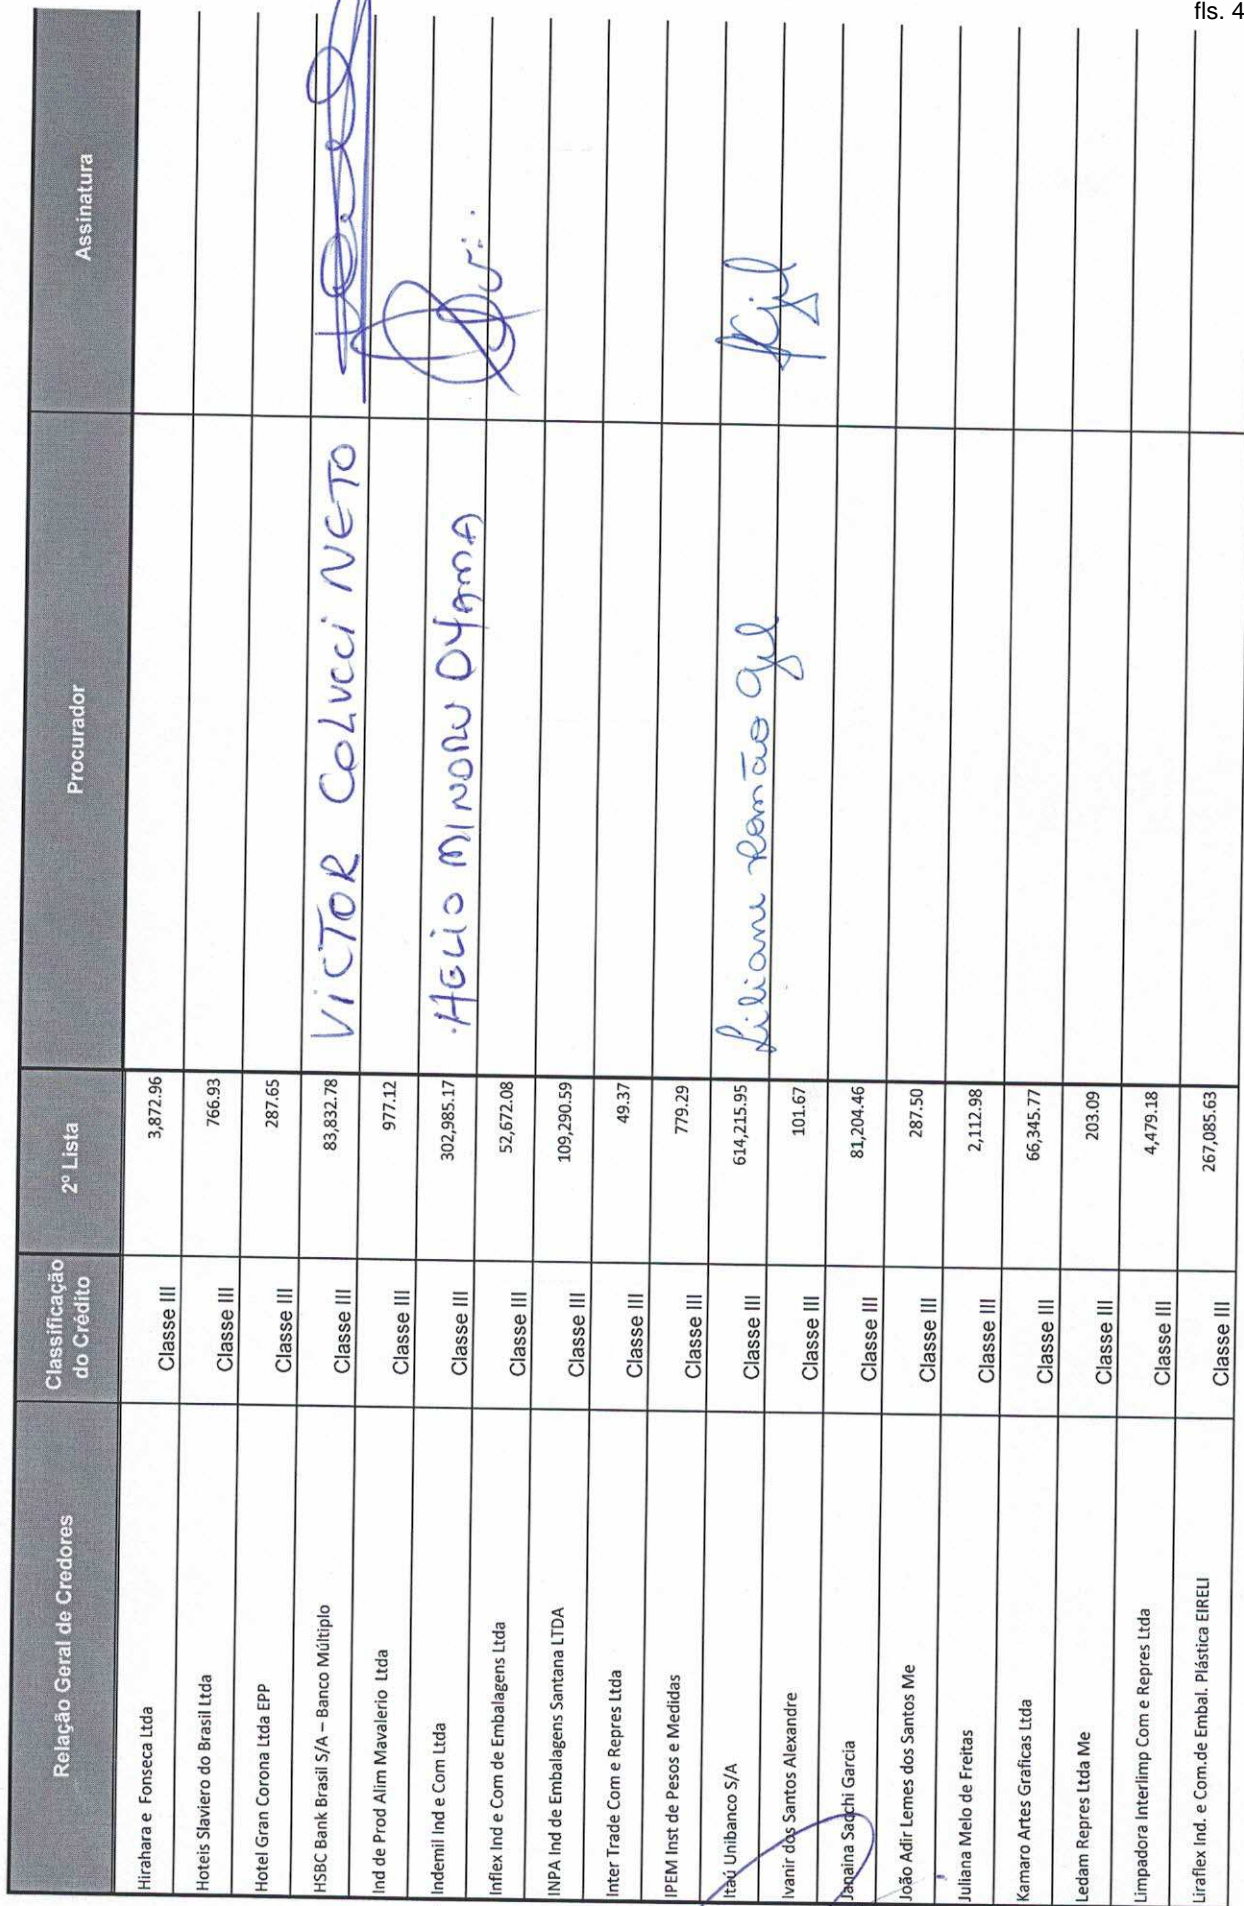 fls. 4
Relação Geral de Credores Classificação do Crédito 2º Lista Procurador Assinatura
Hirahara e Fonseca Ltda Classe III 3,872.96
Hoteis Slaviero do Brasil Ltda Classe III 766.93
Hotel Gran Corona Ltda EPP Classe III 287.65
HSBC Bank Brasil S/A – Banco Múltiplo Classe III 83,832.78 VICTOR COLUCCI NETO
Ind de Prod Alim Mavalerio Ltda Classe III 977.12
Indemil Ind e Com Ltda Classe III 302,985.17 HELIO MINORU OYAMA
Inflex Ind e Com de Embalagens Ltda Classe III 52,672.08
INPA Ind de Embalagens Santana LTDA Classe III 109,290.59
Inter Trade Com e Repres Ltda Classe III 49.37
IPEM Inst de Pesos e Medidas Classe III 779.29
Itaú Unibanco S/A Classe III 614,215.95 Liliane Romão Gil
Ivanir dos Santos Alexandre Classe III 101.67
Janaina Sacchi Garcia Classe III 81,204.46
João Adir Lemes dos Santos Me Classe III 287.50
Juliana Melo de Freitas Classe III 2,112.98
Kamaro Artes Graficas Ltda Classe III 66,345.77
Ledam Repres Ltda Me Classe III 203.09
Limpadora Interlimp Com e Repres Ltda Classe III 4,479.18
Liraflex Ind. e Com.de Embal. Plástica EIRELI Classe III 267,085.63